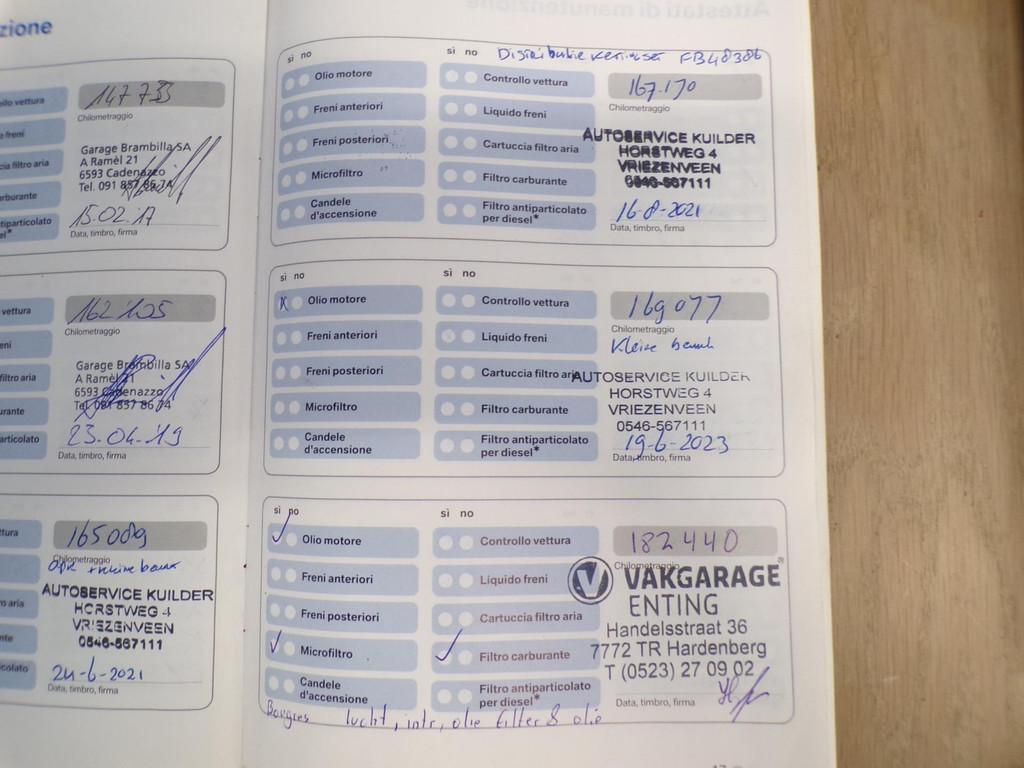 zione
ello vettura
o freni
cia filtro aria
rburante
ntiparticolato
el*
147 733
Chilometraggio
Garage Brambilla SA
A Ramèl 21
6593 Cadenazzo
Tel. 091 857 86 74
15.02.17
Data, timbro, firma
vettura
eni
filtro aria
urante
articolato
162 105
Chilometraggio
Garage Brambilla SA
A Ramèl 21
6593 Cadenazzo
Tel. 091 857 86 74
23.04.19
Data, timbro, firma
ttura
ro aria
nte
colato
165 009
Chilometraggio
AUTOSERVICE KUILDER
HORSTWEG 4
VRIEZENVEEN
0546-567111
24-6-2021
Data, timbro, firma
Attestati di manutenzione
sì no
sì no
Distributie FB48386
Olio motore
Freni anteriori
Freni posteriori
Microfiltro
Candele
d'accensione
Controllo vettura
Liquido freni
Cartuccia filtro aria
Filtro carburante
Filtro antiparticolato
per diesel*
167.170
Chilometraggio
AUTOSERVICE KUILDER
HORSTWEG 4
VRIEZENVEEN
0546-567111
16-8-2021
Data, timbro, firma
sì no
sì no
x Olio motore
Freni anteriori
Freni posteriori
Microfiltro
Candele
d'accensione
Controllo vettura
Liquido freni
Cartuccia filtro aria
Filtro carburante
Filtro antiparticolato
per diesel*
169077
Chilometraggio
Kleine beurt
AUTOSERVICE KUILDER
HORSTWEG 4
VRIEZENVEEN
0546-567111
19-6-2023
Data, timbro, firma
sì no
sì no
Olio motore
Freni anteriori
Freni posteriori
Microfiltro
Candele
d'accensione
Controllo vettura
Liquido freni
Cartuccia filtro aria
Filtro carburante
Filtro antiparticolato
per diesel*
182440
Chilometraggio
VAKGARAGE
ENTING
Handelsstraat 36
7772 TR Hardenberg
T (0523) 27 09 02
Data, timbro, firma
Bougies lucht, intr, olie filter & olie